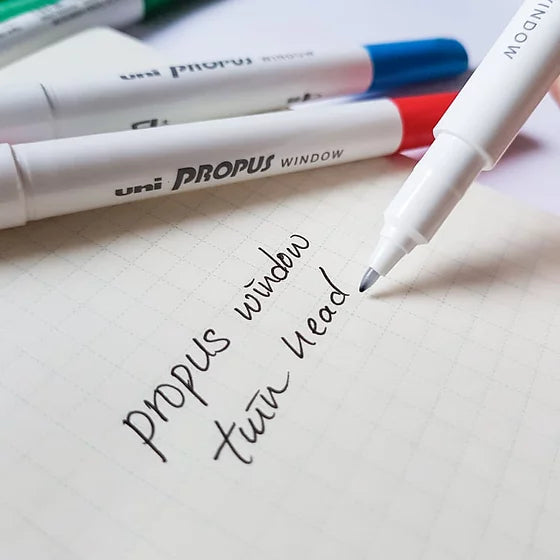 uni PROPUS WINDOW
uni PROPUS WINDOW
WINDOW
propus window
twin head